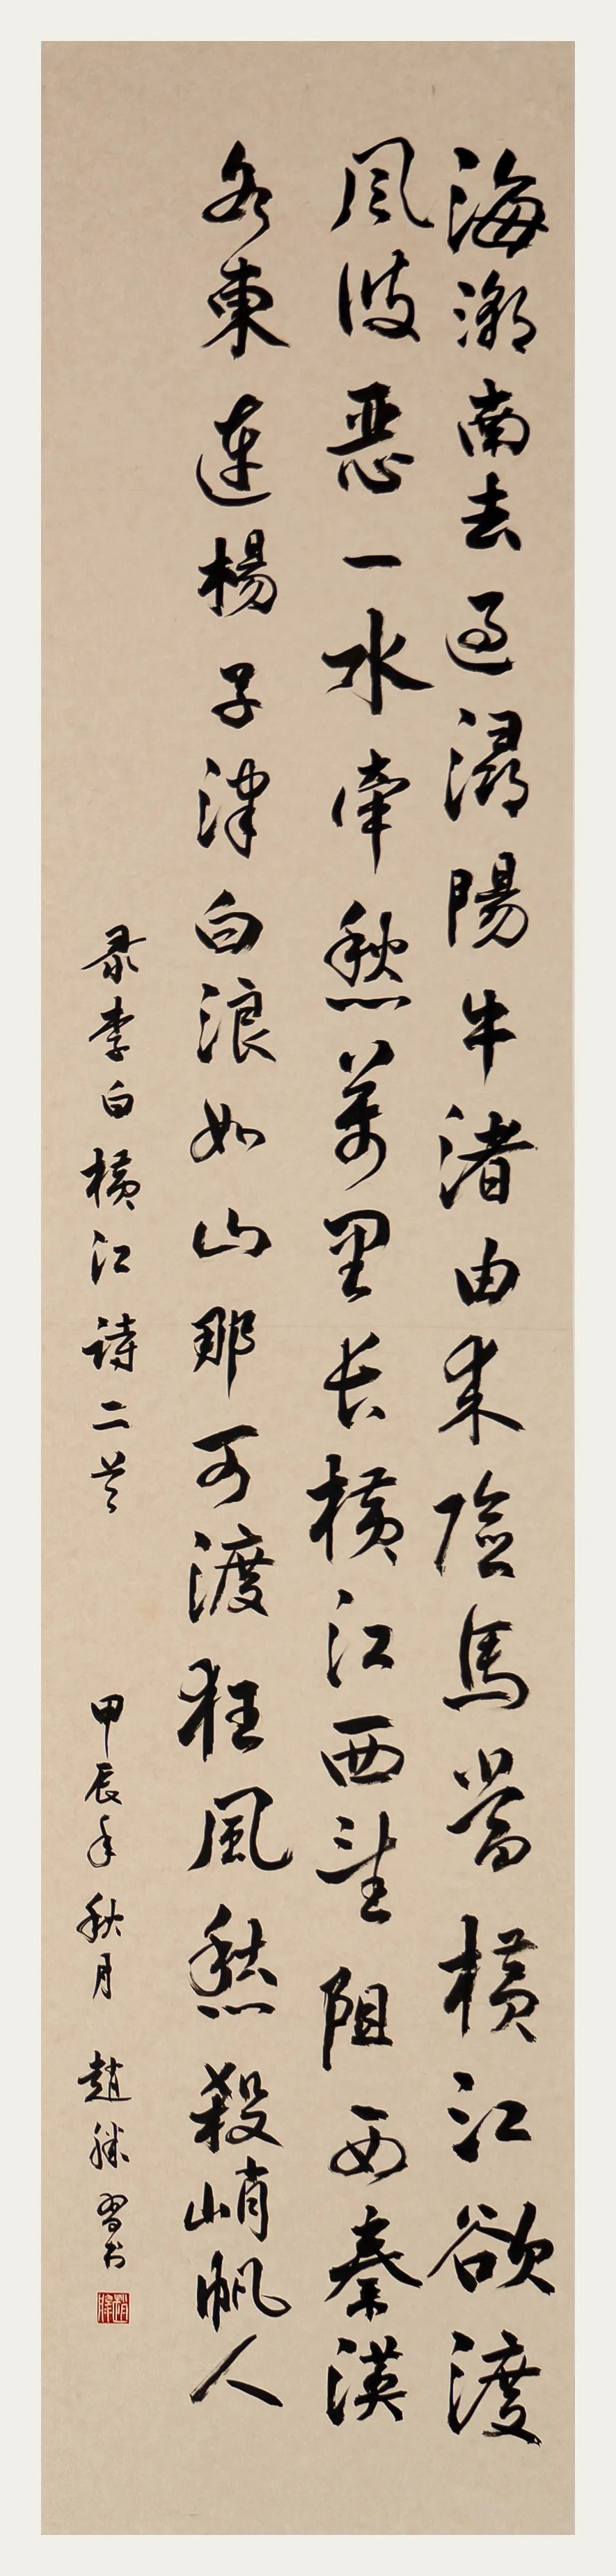 海潮南去過潯陽牛渚由來險馬當橫江欲渡
風波惡一水牽愁萬里長橫江西望阻西秦漢
水東連楊子津白浪如山那可渡狂風愁殺峭帆人
录李白橫江詩二首 甲辰年秋月 趙勝習書
趙勝